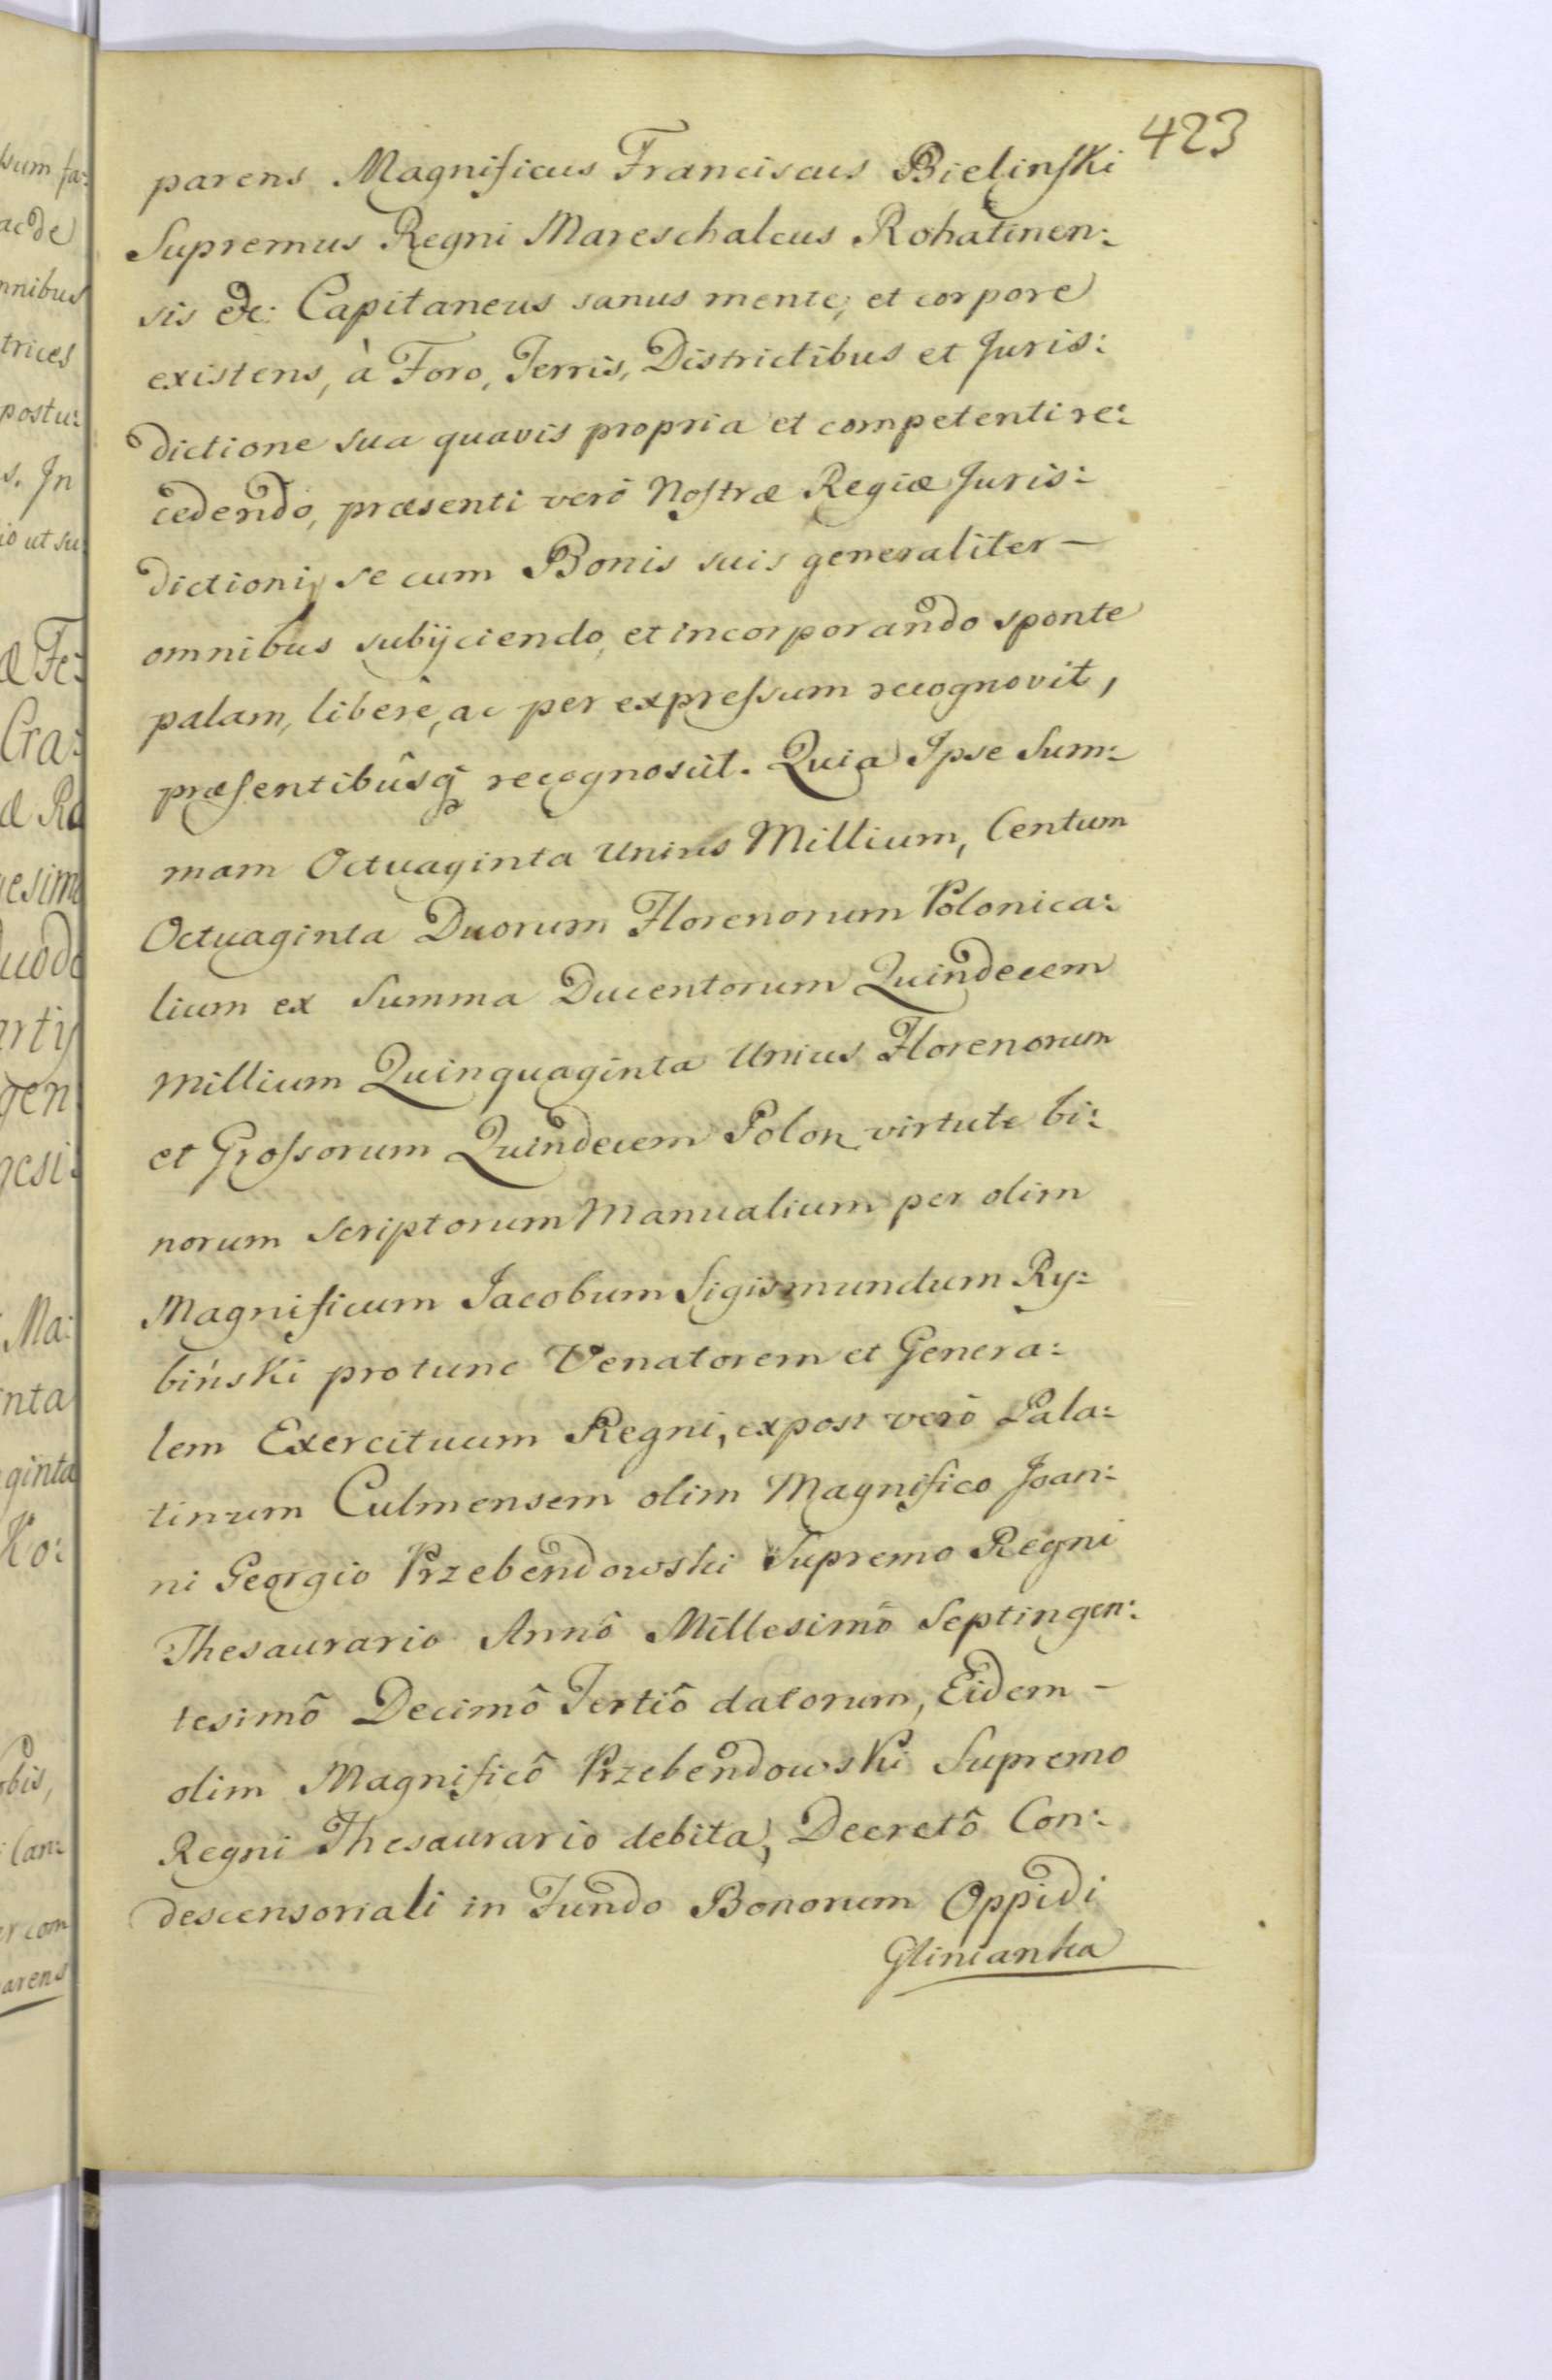 423
parens Magnificus Franciscus Bielinſki
Supremus Regni Mareschalcus Rohatinen:
sis &c: Capitaneus sanus mente, et corpore
existens, à Foro, Terris, Districtibus et Juris:
dictione sua quavis propria et competenti re:
cedendo, præsenti verò Noſtræ Regiæ Juris:
dictioni se cum Bonis suis generaliter —
omnibus subijciendo, et incorporando sponte
palam, liberè, ac per expreſsum recognovit,
præſentibûsq́ recognoscit. Quia Ipse Sum:
mam Octuaginta Unius Millium, Centum
Octuaginta Duorum Florenorum Polonica:
lium ex Summa Ducentorum Quindecem
Millium Quinquaginta Unius Florenorum
et Groſsorum Quindecem Polon virtute bi:
norum Scriptorum Manualium per olim
Magnificum Jacobum Sigismundum Ry:
biński protunc Venatorem et Genera:
lem Exercituum Regni, expost verò Pala:
tinum Culmensem olim Magnifico Joan:
ni Georgio Przebendowski Supremo Regni
Thesaurario Annô Millesimô Septingen:
tesimô Decimô Tertiô datorum, Eidem —
olim Magnificô Przebendowski Supremo
Regni Thesaurario debita, Decretô Con:
descensoriali in Fundo Bonorum Oppidi
Glinianka
sum fa:
ac de
mnibus
trices
postu:
s. In
io ut su:
æ Fe:
Cra:
esim
gen
gesi:
Ma:
inta
ginta
Ko:
obis,
Can:
er com
arens